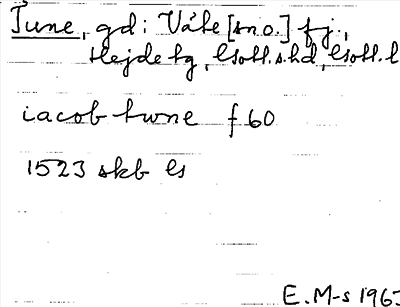 Tune, gd:Väte [sn o.] fj.,
Hejde tg, Gotl.s.hd, Gotl. l
iacob twne f 60
1523 skb Gs
E. M-s 1963